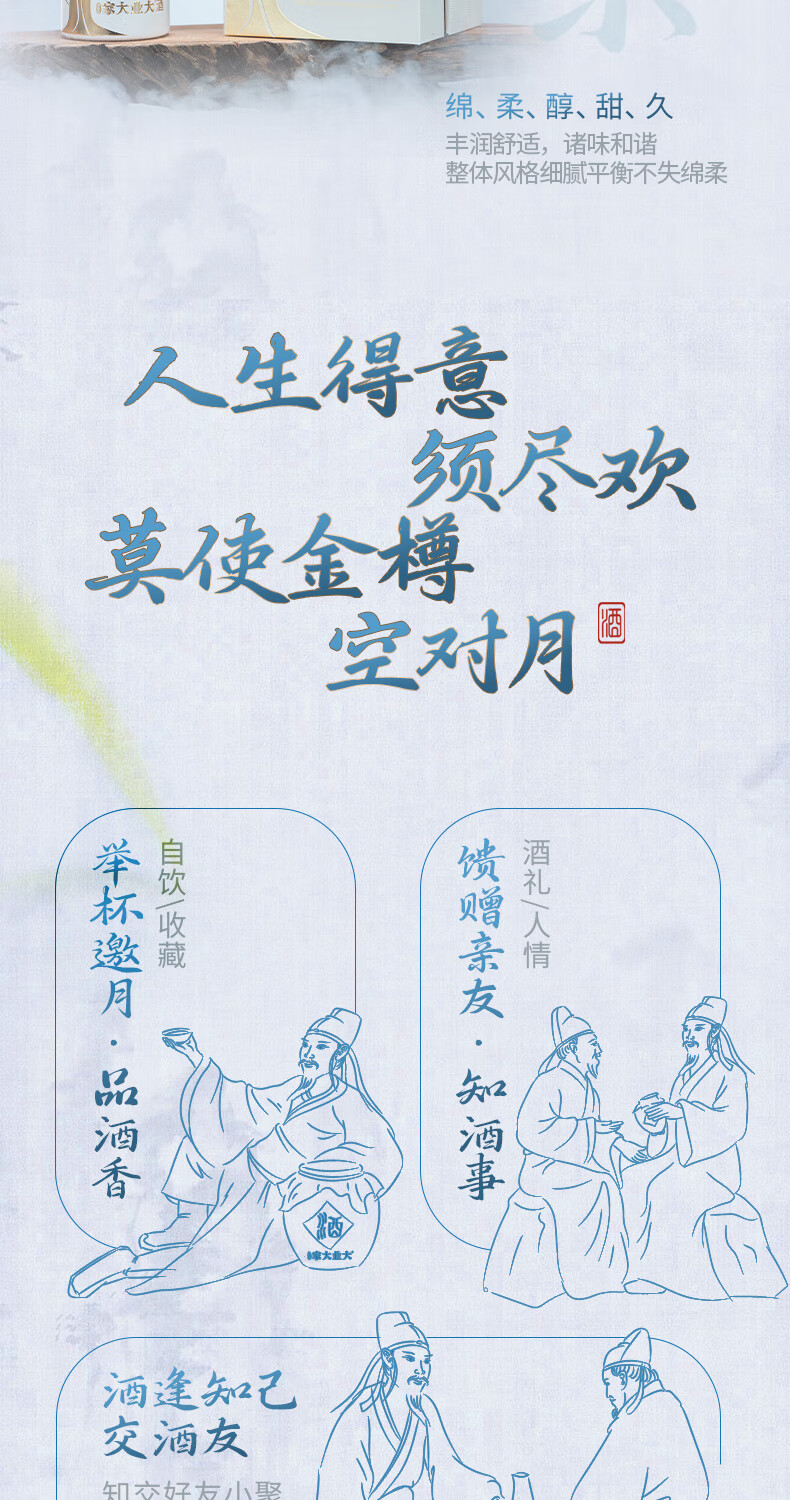 家大业大酒
绵、柔、醇、甜、久
丰润舒适，诸味和谐
整体风格细腻平衡不失绵柔
人生得意
须尽欢
莫使金樽
空对月
酒
举杯邀月·品酒香
自饮/收藏
馈赠亲友·知酒事
酒礼/人情
酒
家大业大
酒逢知己
交酒友
知交好友小聚